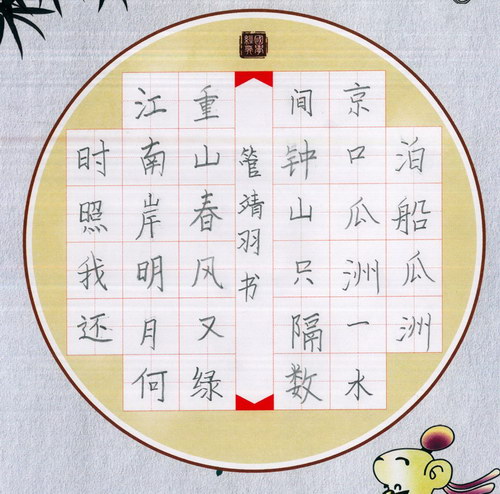 泊船瓜洲
京口瓜洲一水
间钟山只隔数
管靖羽书
重山春风又绿
江南岸明月何
时照我还